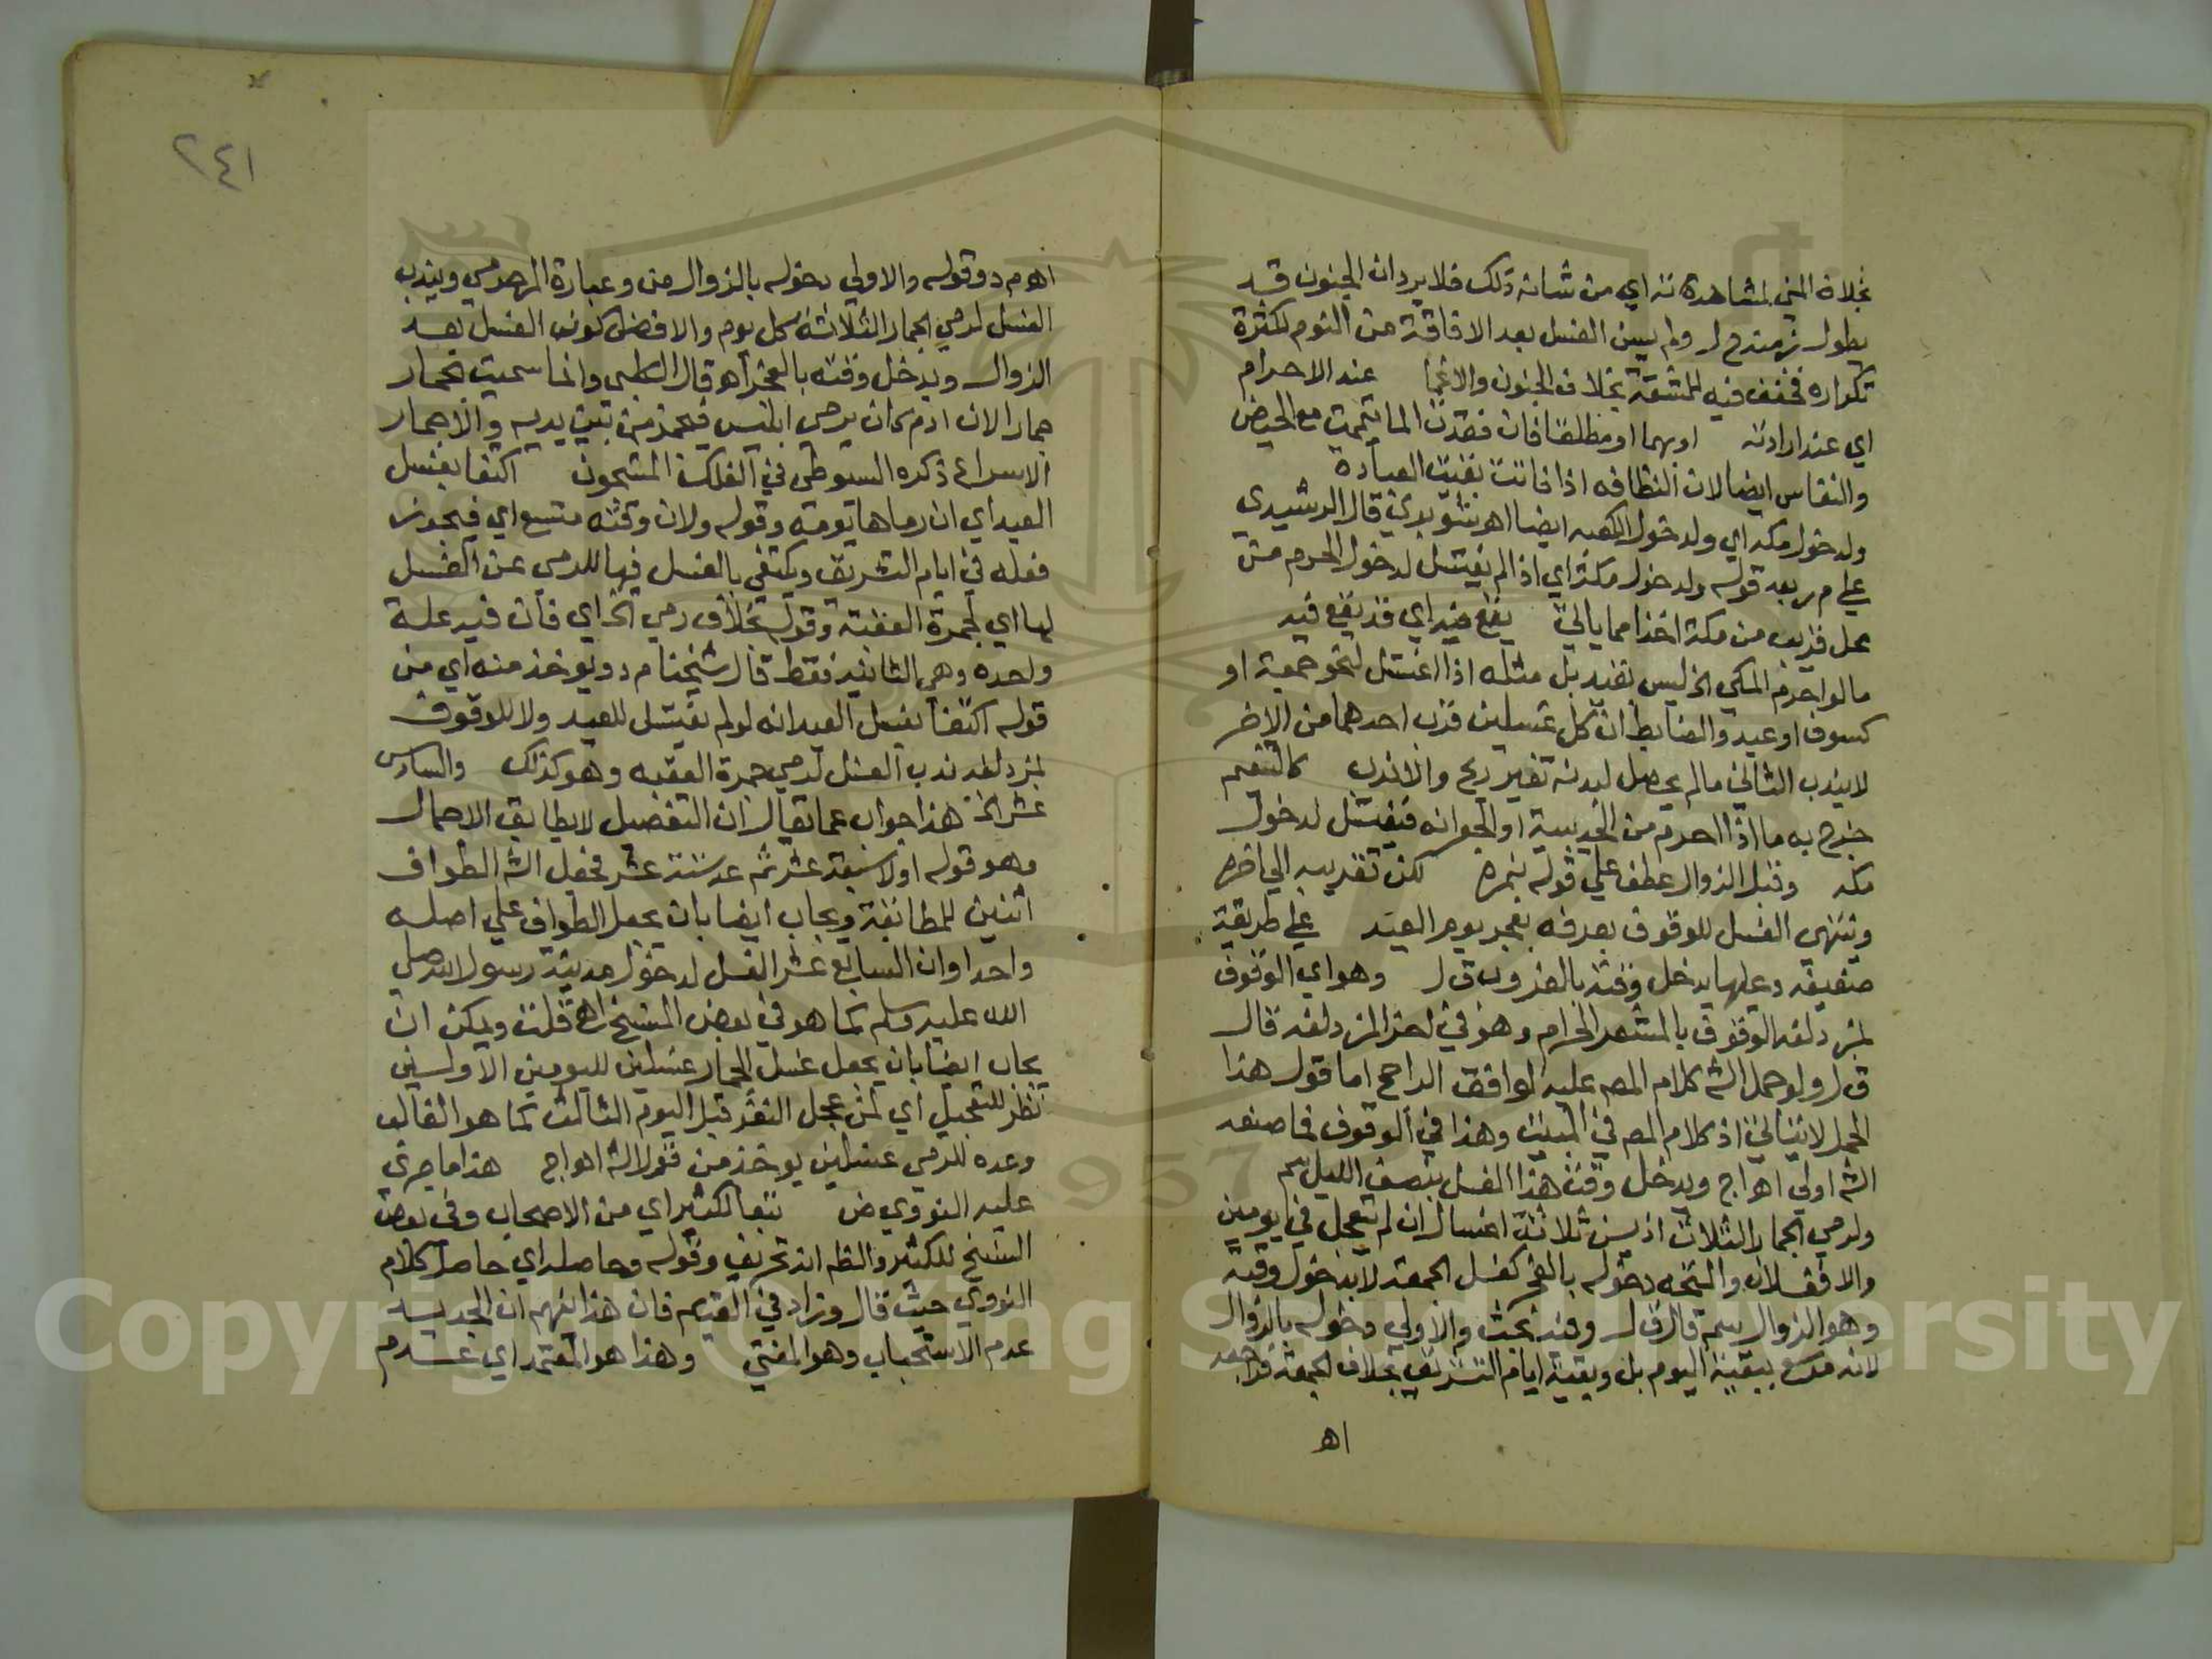 بخلاف المني لمشاهدته اي من شانه ذلك فلا يرد ان المجنون قد
يطول زمنه ح ل ولم يسن الغسل بعد الافاقة من النوم لكثرة
تكراره فخفف فيه للمشقة بخلاف الجنون والاغما عند الاحرام
اي عند ارادته او بهما او مطلقا فان فقدت الما تيممت مع الحيض
والنفاس ايضا لان النظافه اذا فاتت بقيت العبادة
ولدخول مكه اي ولدخول الكعبه ايضا اه شوبري قال الرشيدي
علي م ر بعد قوله ولدخول مكة اي اذا لم يغتسل لدخول الحرم من
محل قريب من مكة اخذا مما ياتي يقع فيه اي قد يقع فيه
ما لو احرم المكي الخ ليس بقيد بل مثله اذا اغتسل لنحو جمعة او
كسوف او عيد والضابط ان كل غسلين قرب احدهما من الاخر
لا يندب الثاني ما لم يحصل لبدنه تغير ريح والا ندب كالتنعيم
خرج به ما اذا احرم من الحديبية او الجعرانه فيغتسل لدخول
مكه وقبل الزوال عطف علي قوله بنمره لكن تقريبه الي اخره
وينتهي الغسل للوقوف بعرفه بفجر يوم العيد علي طريقة
ضعيفه وعليها يدخل وقته بالغروب ق ل وهو اي الوقوف
بمزدلفه الوقوف بالمشعر الحرام وهو في اخر المزدلفه قال
ق ل ولو حمل الش كلام المص عليه لوافق الراجح اما قول هذا
المحمل لا يتاتي اذ كلام المص في المبيت وهذا في الوقوف فما صنعه
الش اولي اه اج ويدخل وقت هذا الغسل بنصف الليل سم
ولرمي الجمار الثلاث اذ يسن ثلاثة اغسال ان لم يتعجل في يومين
والا فغسلان والمتجه دخوله بالفجر كغسل الجمعة لا بدخول وقته
وهو الزوال سم قال ق ل وفيه بحث والاولي دخوله بالزوال
لانه موسع ببقية اليوم بل وبقية ايام التشريق بخلاف الجمعة فراجعه
اه
٢٤١
اه م د وقوله والاولي دخوله بالزوال من وعبارة المرحومي ويندب
الغسل لرمي الجمار الثلاثة كل يوم والافضل كون الغسل بعد
الزوال ويدخل وقته بالفجر اه قال الطبي وانما سميت الجمار
جمارا لان ادم كان يرمي ابليس فيجمر من بين يديه والاجمار
الاسراع ذكره السيوطي في الفلك المشحون اكتفا بغسل
العيد اي ان رماها يومه وقوله ولان وقته متسع اي فيجوز
فعله في ايام التشريق ويكتفي بالغسل فيها للرمي عن الغسل
لها اي لجمرة العقبة وقوله بخلاف رمي الخ اي فان فيه علة
واحده وهي الثانية فقط قال شيخنا م د ويوخذ منه اي من
قوله اكتفا بغسل العيد انه لو لم يغتسل للعيد ولا للوقوف
بمزدلفه ندب الغسل لرمي جمرة العقبه وهو كذلك والسادس
عشر الخ هذا جواب عما يقال ان التفصيل لا يطابق الاجمال
وهو قوله اولا سبعة عشر ثم عد ستة عشر فجعل الش الطواف
اثنين للمطابقة ويجاب ايضا بان يجعل الطواف علي اصله
واحدا وان السابع عشر الغسل لدخول مدينة رسول الله صلي
الله عليه وسلم كما هو في بعض النسخ اه قلت ويمكن ان
يجاب ايضا بان يجعل غسل الجمار غسلين لليومين الاولين
نظر للتعجيل اي لمن عجل النفر قبل اليوم الثالث كما هو الغالب
وعده للرمي غسلين يوخذ من قول الش اه اج هذا ما جري
عليه النووي ض تبعا لكثير اي من الاصحاب وفي بعض
النسخ للكثير والظ انه تحريف وقوله وحاصله اي حاصل كلام
النووي حيث قال وزاد في القديم فان هذا يفهم ان الجديد
عدم الاستحباب وهو المفتي وهذا هو المعتمد اي عدم